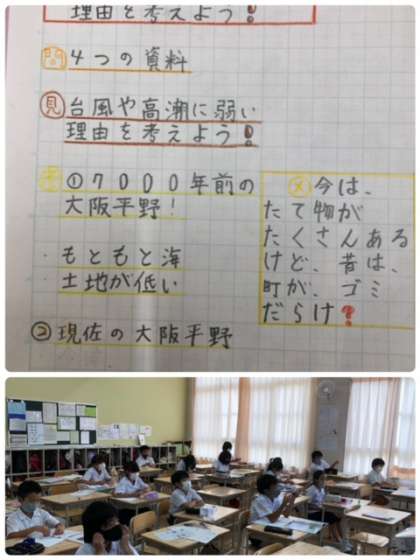 理由を考えよう!
問 4つの資料
見 台風や高潮に弱い
理由を考えよう!
予 ①7000年前の
大阪平野!
・もともと海
・土地が低い
②現佐の大阪平野
メ 今は、
たて物が
たくさんある
けど、昔は、
町が、ゴミ
だらけ?